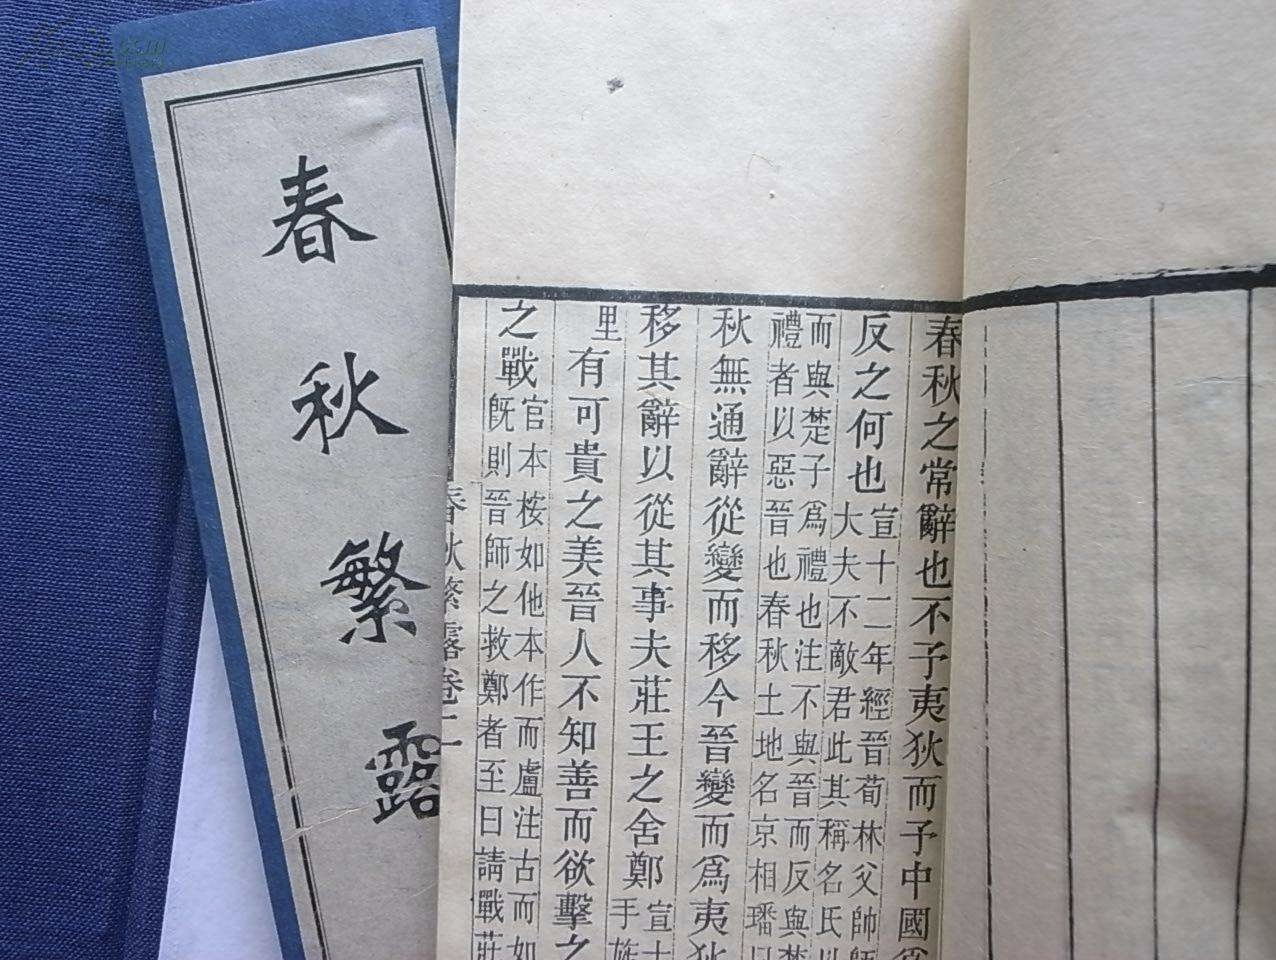 春秋之常辭也不予夷狄而予中國爲
反之何也
宣十二年經晉荀林父帥師
大夫不敵君此其稱名氏以
而與楚子爲禮也注不與晉而反與楚
禮者以惡晉也春秋土地名京相璠曰
秋無通辭從變而移今晉變而爲夷狄
移其辭以從其事夫莊王之舍鄭
宣十
手旌
里
有可貴之美晉人不知善而欲擊之
之戰
官本桉如他本作而盧注古而如
旣則晉師之救鄭者至曰請戰莊
春秋繁露卷二
春秋繁露